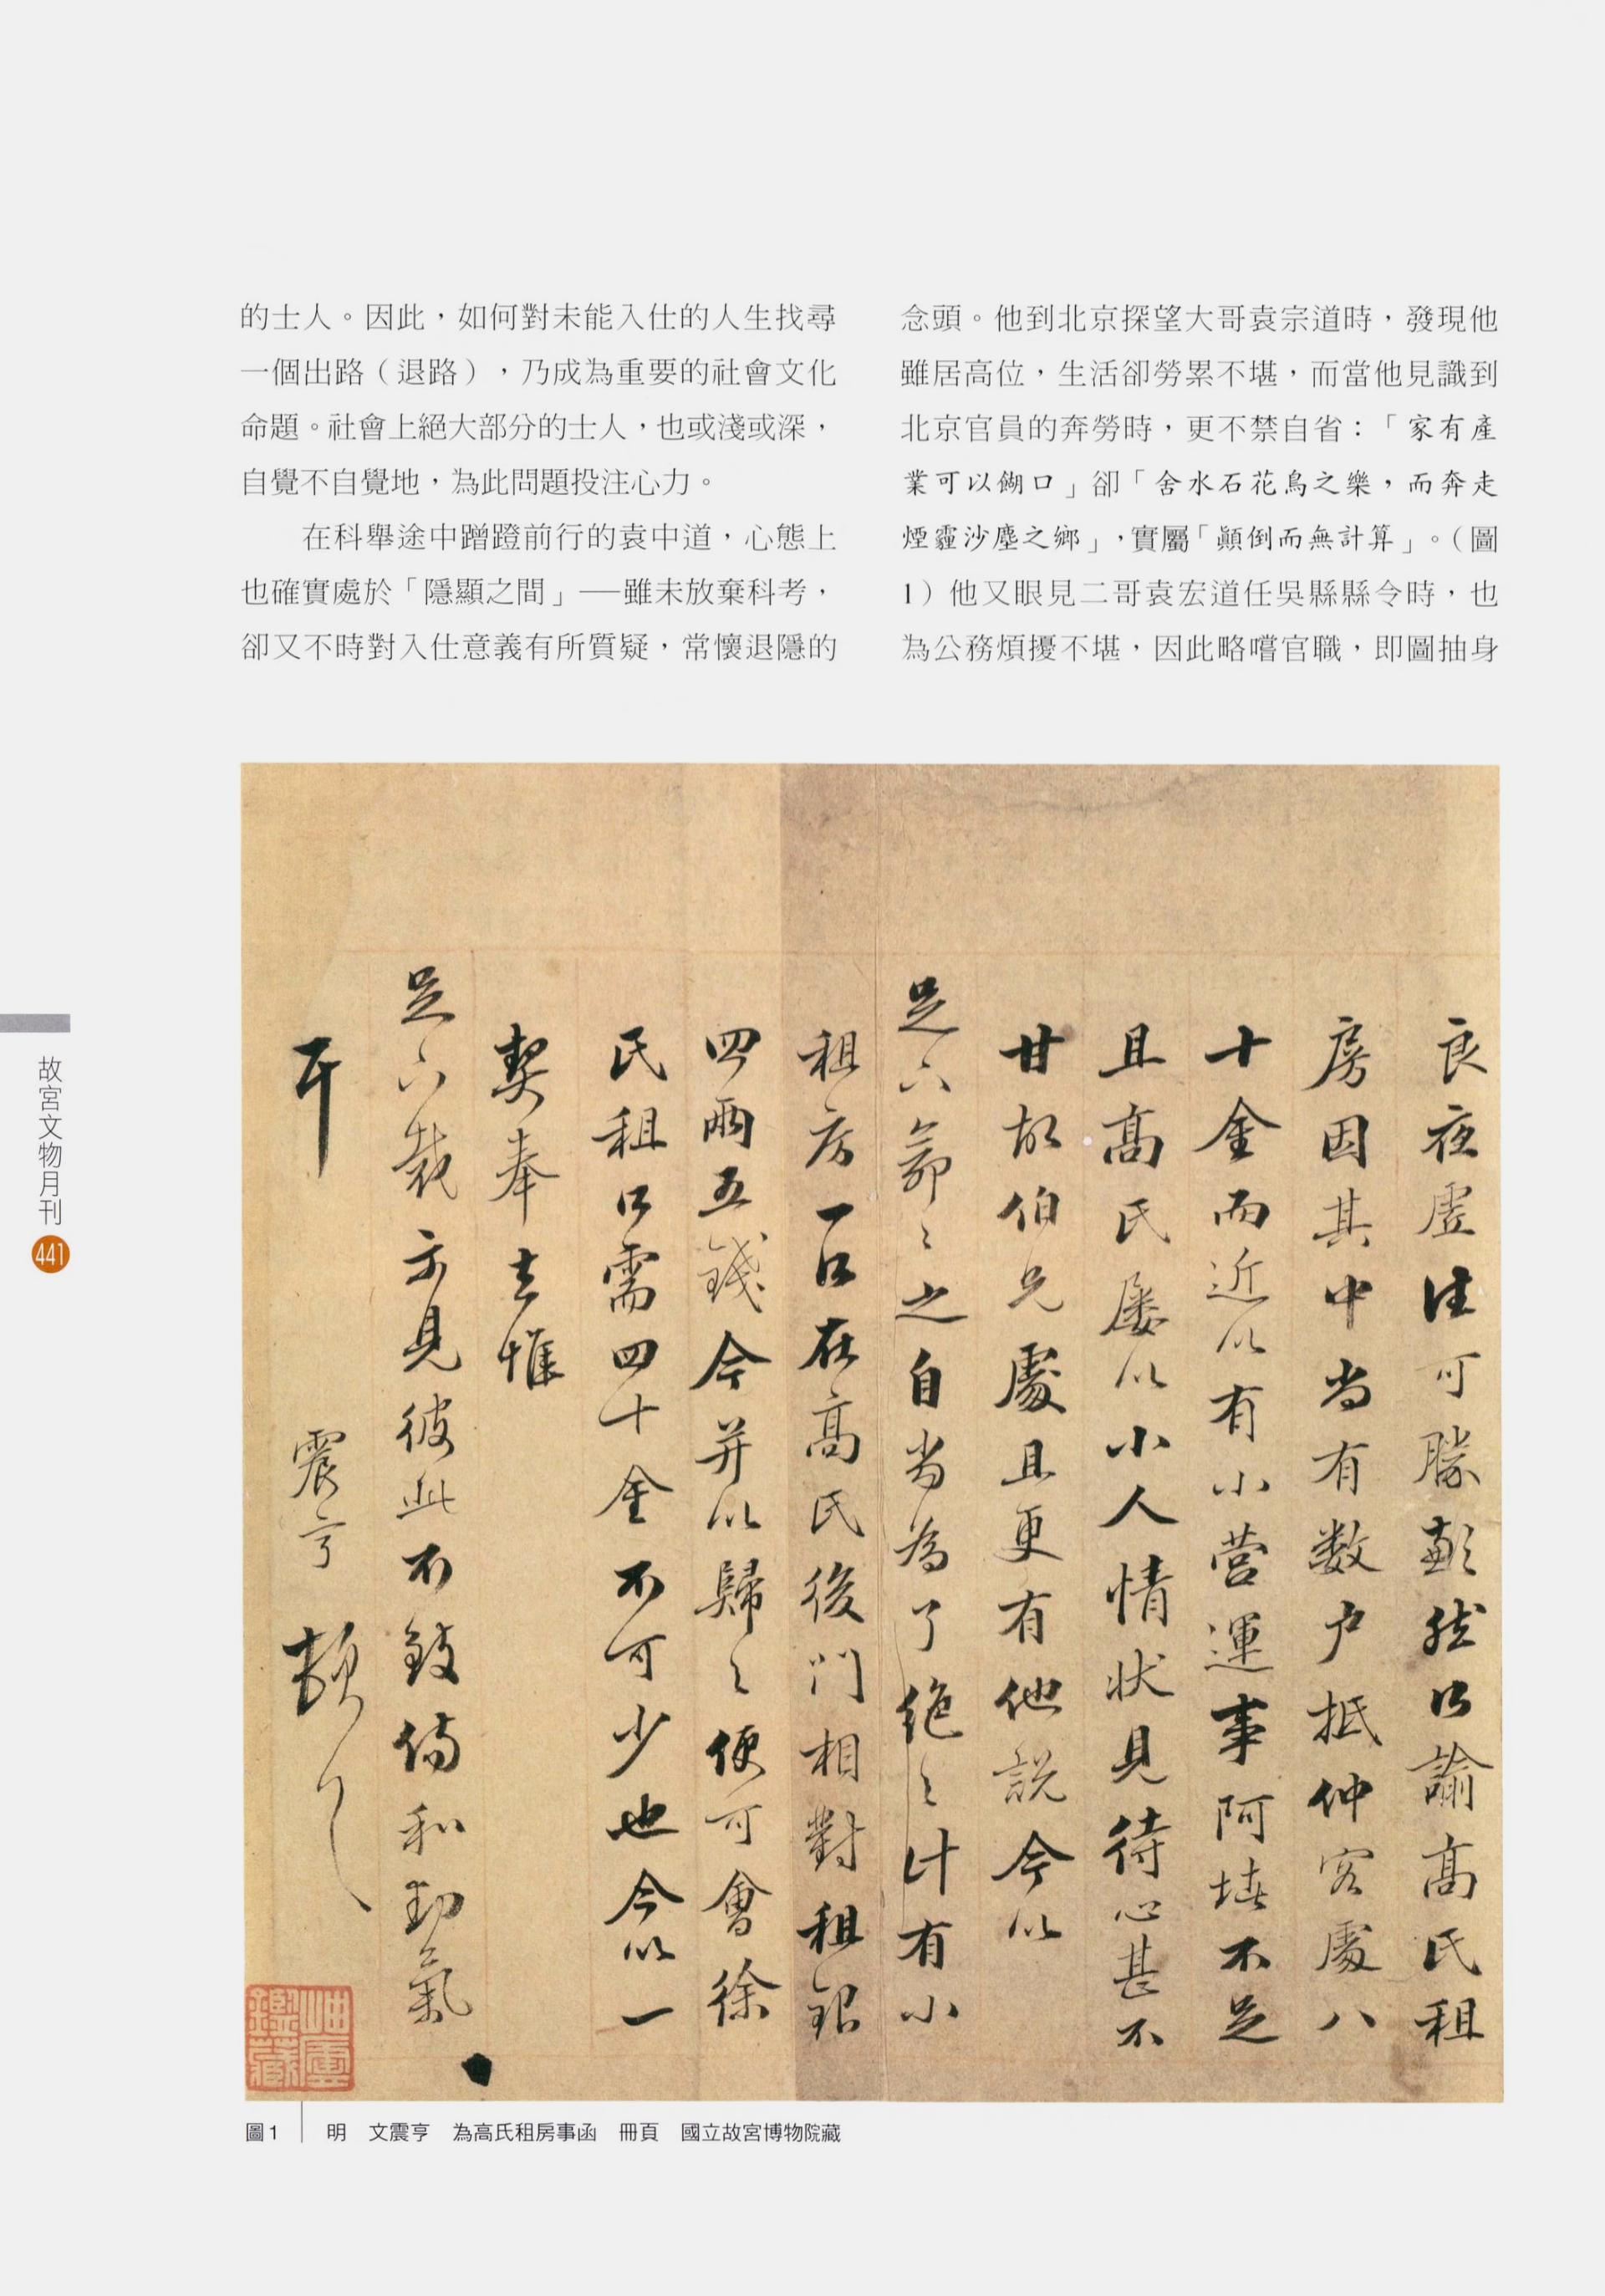 的士人。因此，如何對未能入仕的人生找尋
一個出路（退路），乃成為重要的社會文化
命題。社會上絕大部分的士人，也或淺或深，
自覺不自覺地，為此問題投注心力。
在科舉途中蹭蹬前行的袁中道，心態上
也確實處於「隱顯之間」──雖未放棄科考，
卻又不時對入仕意義有所質疑，常懷退隱的
念頭。他到北京探望大哥袁宗道時，發現他
雖居高位，生活卻勞累不堪，而當他見識到
北京官員的奔勞時，更不禁自省：「家有產
業可以餬口」卻「舍水石花鳥之樂，而奔走
煙霾沙塵之鄉」，實屬「顛倒而無計算」。（圖
1）他又眼見二哥袁宏道任吳縣縣令時，也
為公務煩擾不堪，因此略嚐官職，即圖抽身
良夜虛往可勝然口諭高氏租
房因其中尚有数户抵仲客處八
十金而近以有小營運事阿堵不足
且高氏屡以小人情状見待心甚不
甘故伯兄處且更有他説今以
足下爺之自当為了絶之計有小
租房一口在高氏後門相對租銀
四兩五錢今并以歸之便可會徐
民租口需四十金不可少也今以一
契奉去惟
足下裁示見彼此不致傷和動氣
震亨 頓
鑑藏
故宮文物月刊 441
圖1 明 文震亨 為高氏租房事函 冊頁 國立故宮博物院藏